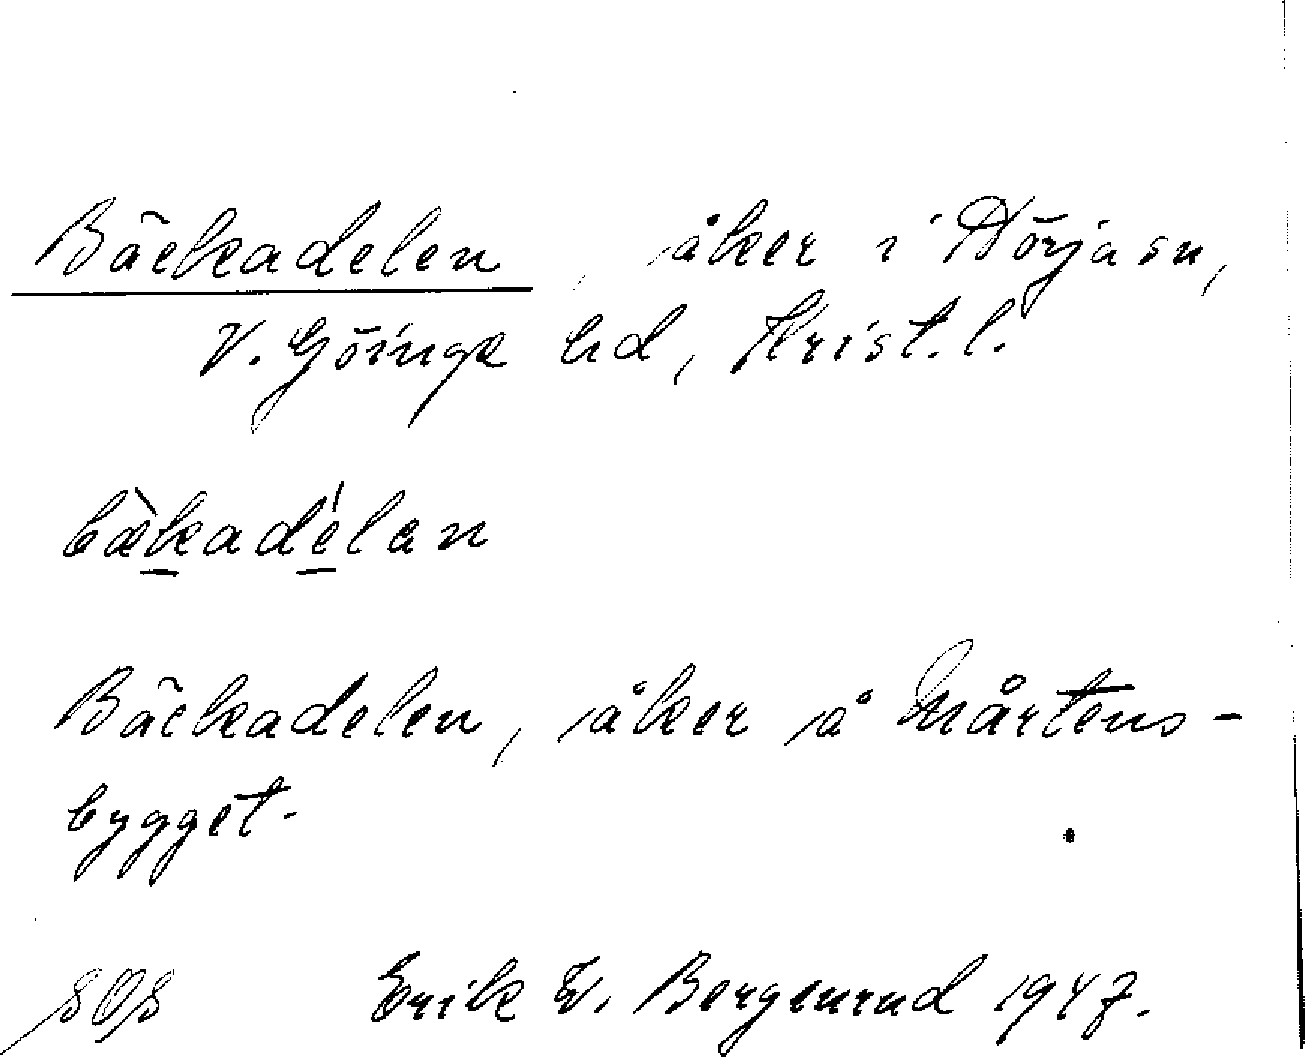 Bäckadelen, åker i Nörja sn,
V. Göinge hd, Krist. l.
bækadelan
Bäckadelen, åker å Mårtens-
bygget.
Erik W. Bergenrud 1947.